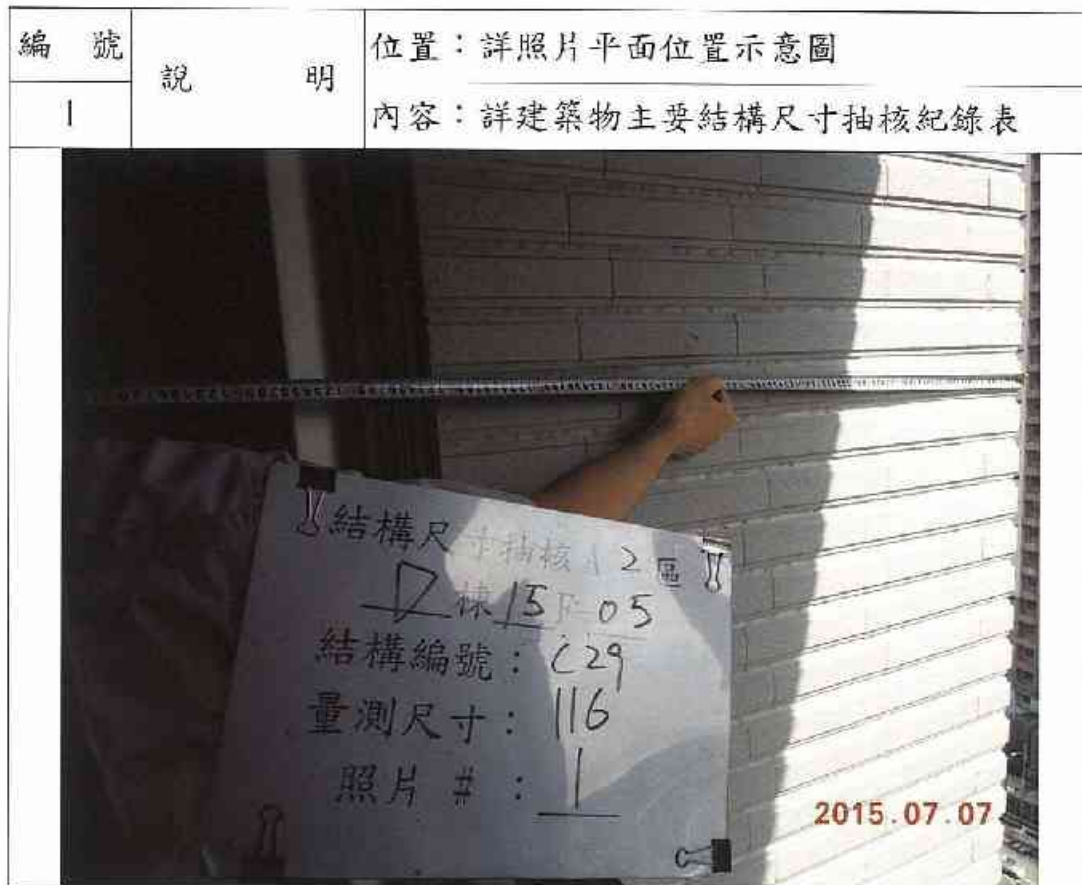 編 號
1
說 明
位置：詳照片平面位置示意圖
內容：詳建築物主要結構尺寸抽核紀錄表
結構尺寸抽核 2區
D棟15F 05
結構編號：C29
量測尺寸：116
照片 #：1
2015.07.07